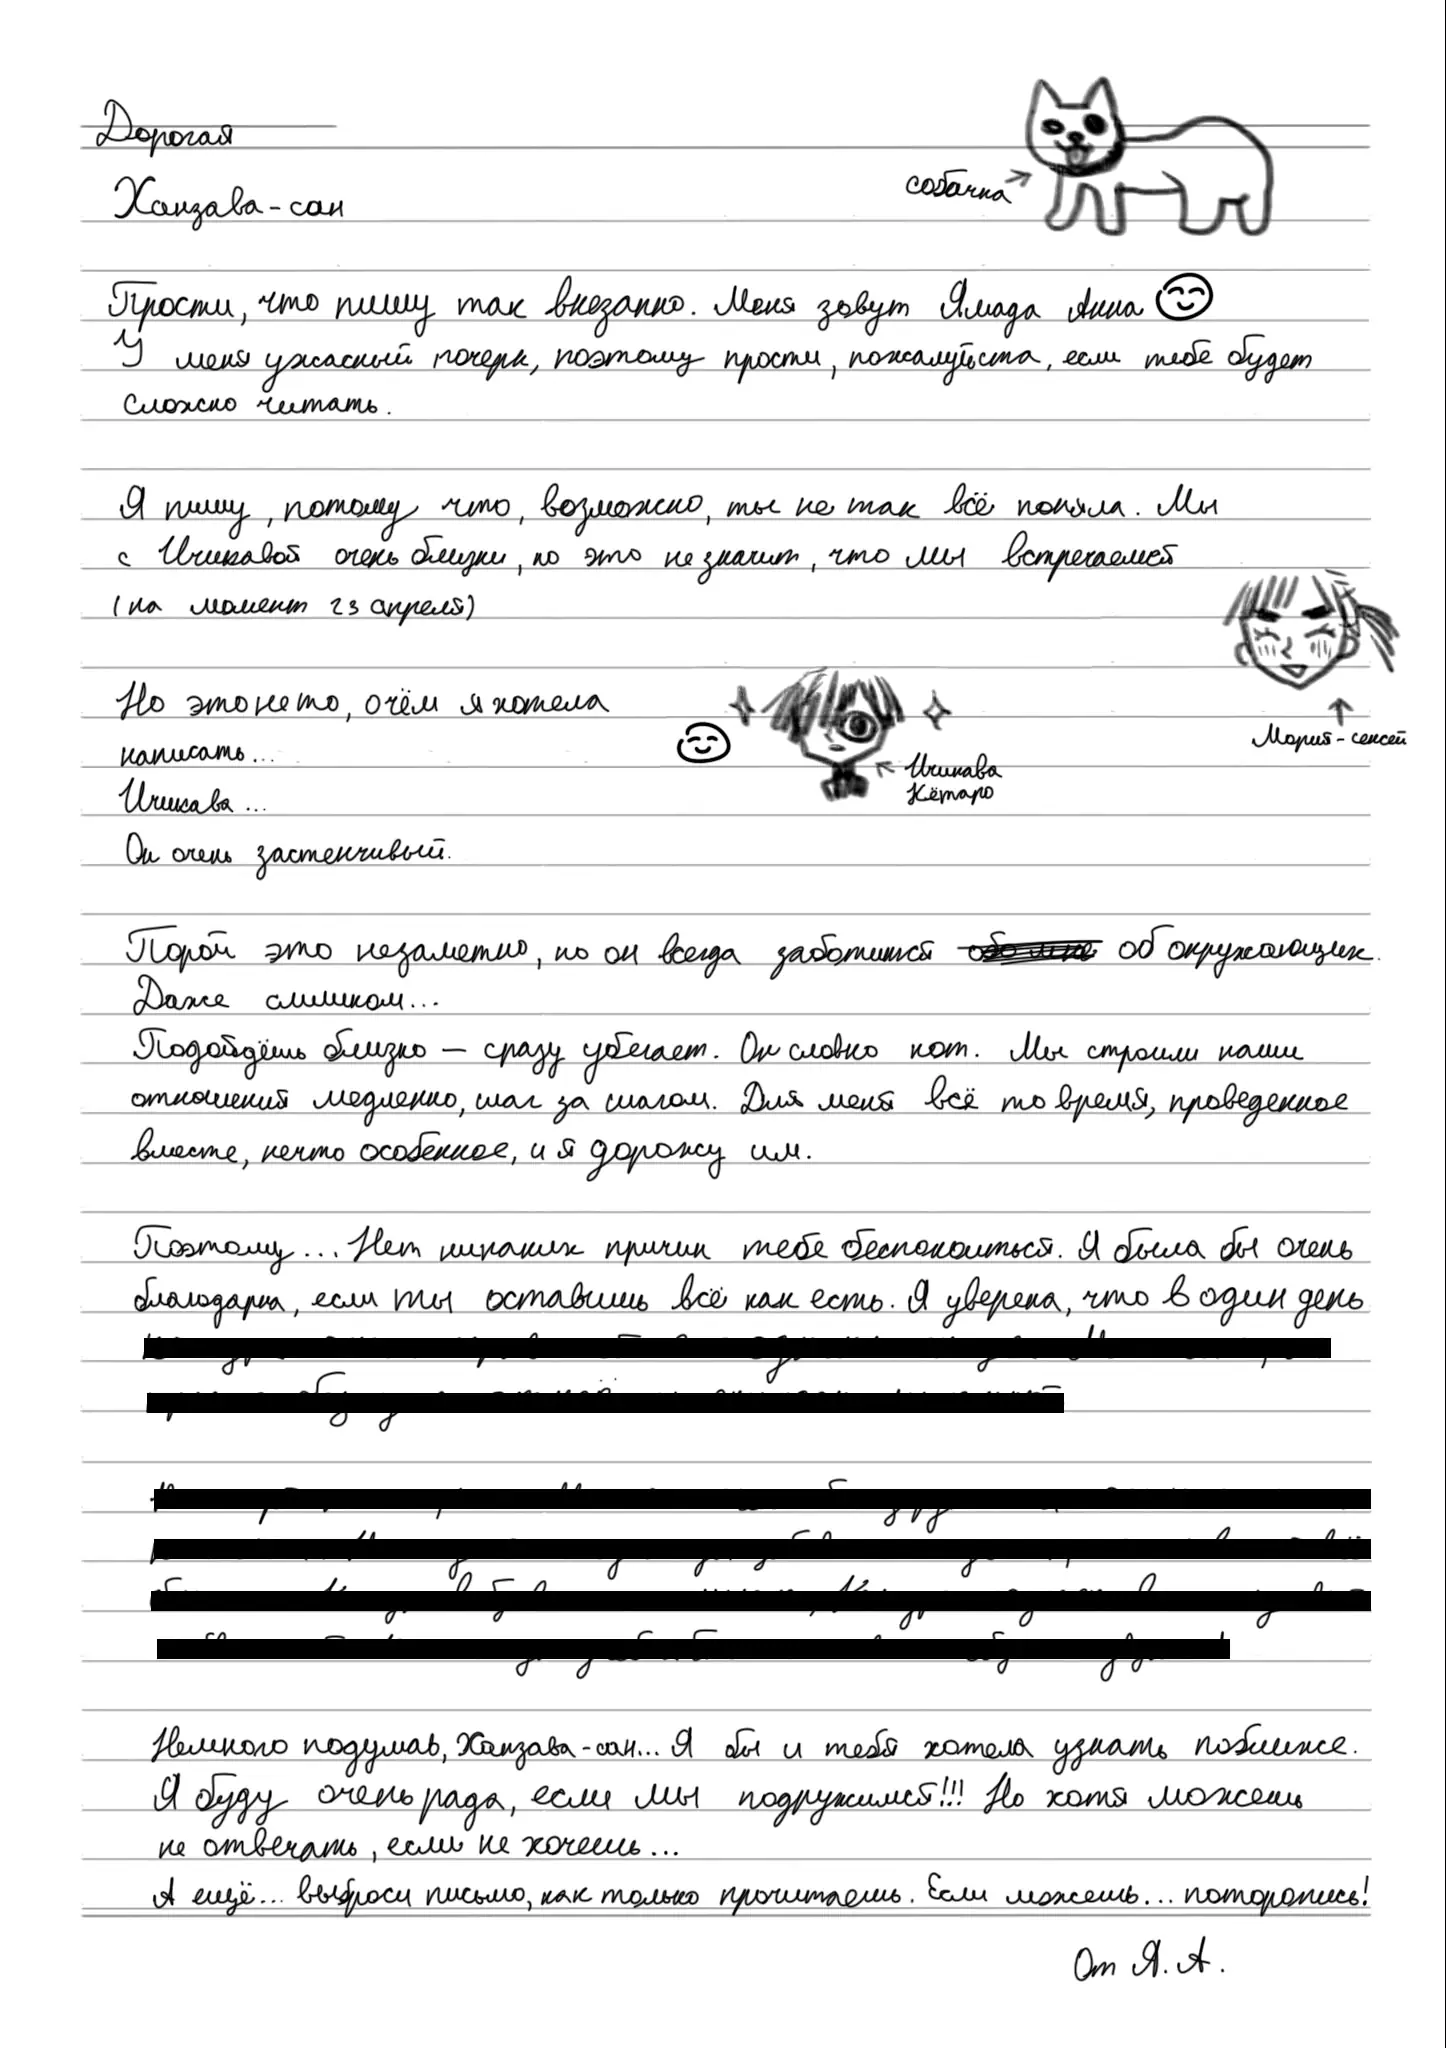 Дорогая
Ханзава-сан
собачка
Прости, что пишу так внезапно. Меня зовут Ямада Анна
У меня ужасный почерк, поэтому прости, пожалуйста, если тебе будет
сложно читать.
Я пишу, потому что, возможно, ты не так всё поняла. Мы
с Ичикавой очень близки, но это не значит, что мы встречаемся
(на момент 23 апреля)
Но это не то, о чём я хотела
написать...
Ичикава...
Он очень застенчивый.
Ичикава
Кётаро
Мория-сенсей
Порой это незаметно, но он всегда заботится обо мне об окружающих.
Даже слишком...
Подойдёшь близко — сразу убегает. Он словно кот. Мы строили наши
отношения медленно, шаг за шагом. Для меня всё то время, проведенное
вместе, нечто особенное, и я дорожу им.
Поэтому... Нет никаких причин тебе беспокоиться. Я была бы очень
благодарна, если ты оставишь всё как есть. Я уверена, что в один день
Немного подумав, Ханзава-сан... Я бы и тебя хотела узнать поближе.
Я буду очень рада, если мы подружимся!!! Но хотя можешь
не отвечать, если не хочешь...
А ещё... выброси письмо, как только прочитаешь. Если можешь... поторопись!
От Я.А.